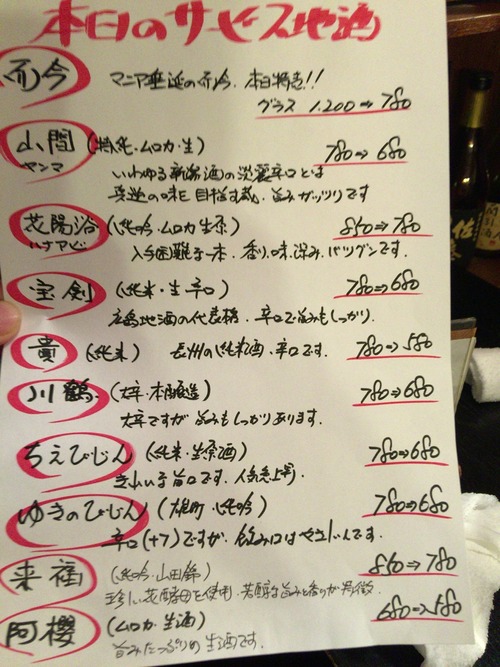 本日のサービス地酒
而今 マニア垂涎の而今、本日特売!!
グラス 1.200⇒780
山間 (特純・ムロカ・生) 780⇒680
ヤンマ いわゆる新潟酒の淡麗辛口とは
真逆の味を目指す蔵。旨みガッツリです
花陽浴 (純吟・ムロカ生原) 850⇒780
ハナアビ 入手困難な一本、香り、味、深み、バツグンです。
宝剣 (純米・生・辛口) 780⇒680
広島地酒の代表格、辛口で旨みもしっかり。
貴 (純米) 長州の純米酒、辛口です。 780⇒580
川鶴 (大辛・本醸造) 780⇒680
大辛ですが旨みもしっかりあります。
ちえびじん (純米・生原酒) 780⇒680
きれいな旨口です。人気急上昇。
ゆきのびじん (雄町 純吟) 780⇒680
辛口(+7)ですが、飲み口はやさしいんです。
来福 (純吟・山田錦) 850⇒780
珍しい花酵母を使用、芳醇な旨みと香りが特徴。
阿櫻 (ムロカ・生酒) 680⇒580
旨みたっぷりの生酒です。